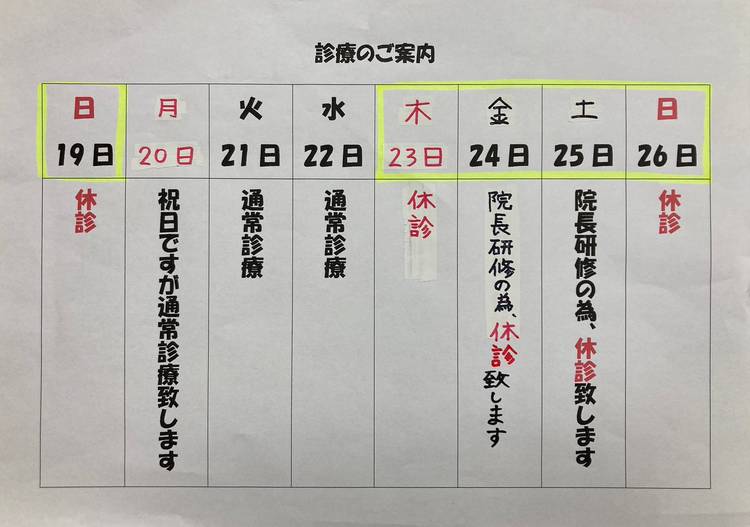 診療のご案内
日 月 火 水 木 金 土 日
19日 20日 21日 22日 23日 24日 25日 26日
休診
祝日ですが通常診療致します
通常診療
通常診療
休診
院長研修の為、休診致します
院長研修の為、休診致します
休診